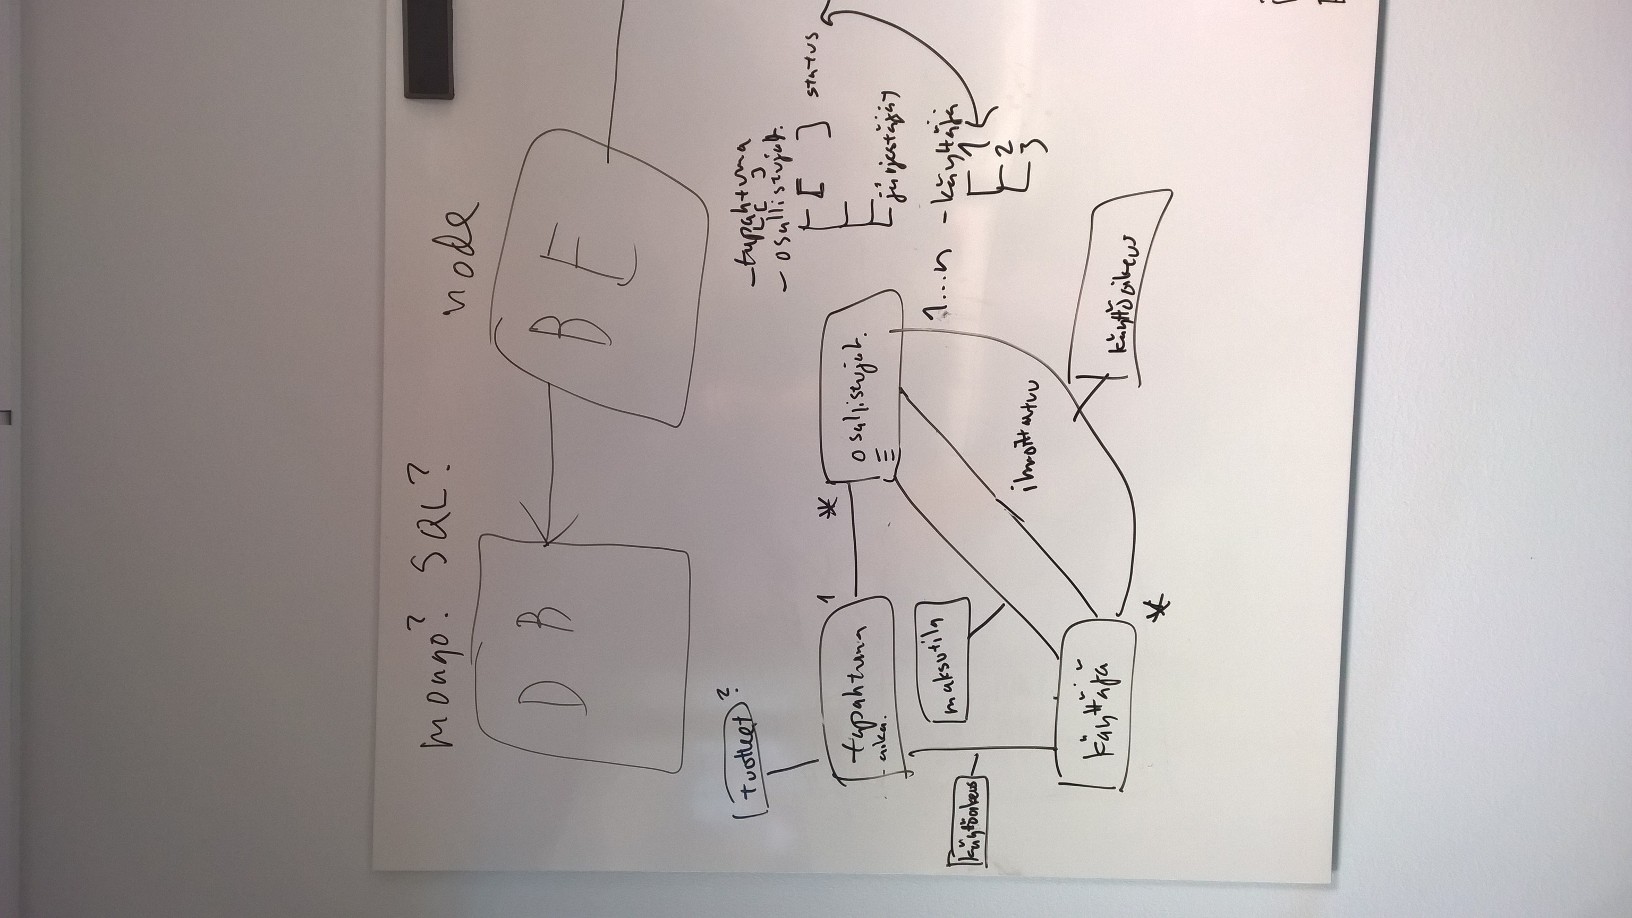 mongo? SQL?
node
D B
B E
tuotteet?
tapahtuma
- aika.
1
*
osallistujat.
käyttöoikeus
maksutila
ilmoittautuu
1...n
käyttäjä
*
käyttöoikeus
- tapahtuma
[ [ ]
- osallistujat.
[ ] status
järjestäjä
- käyttäjä
1
2
3